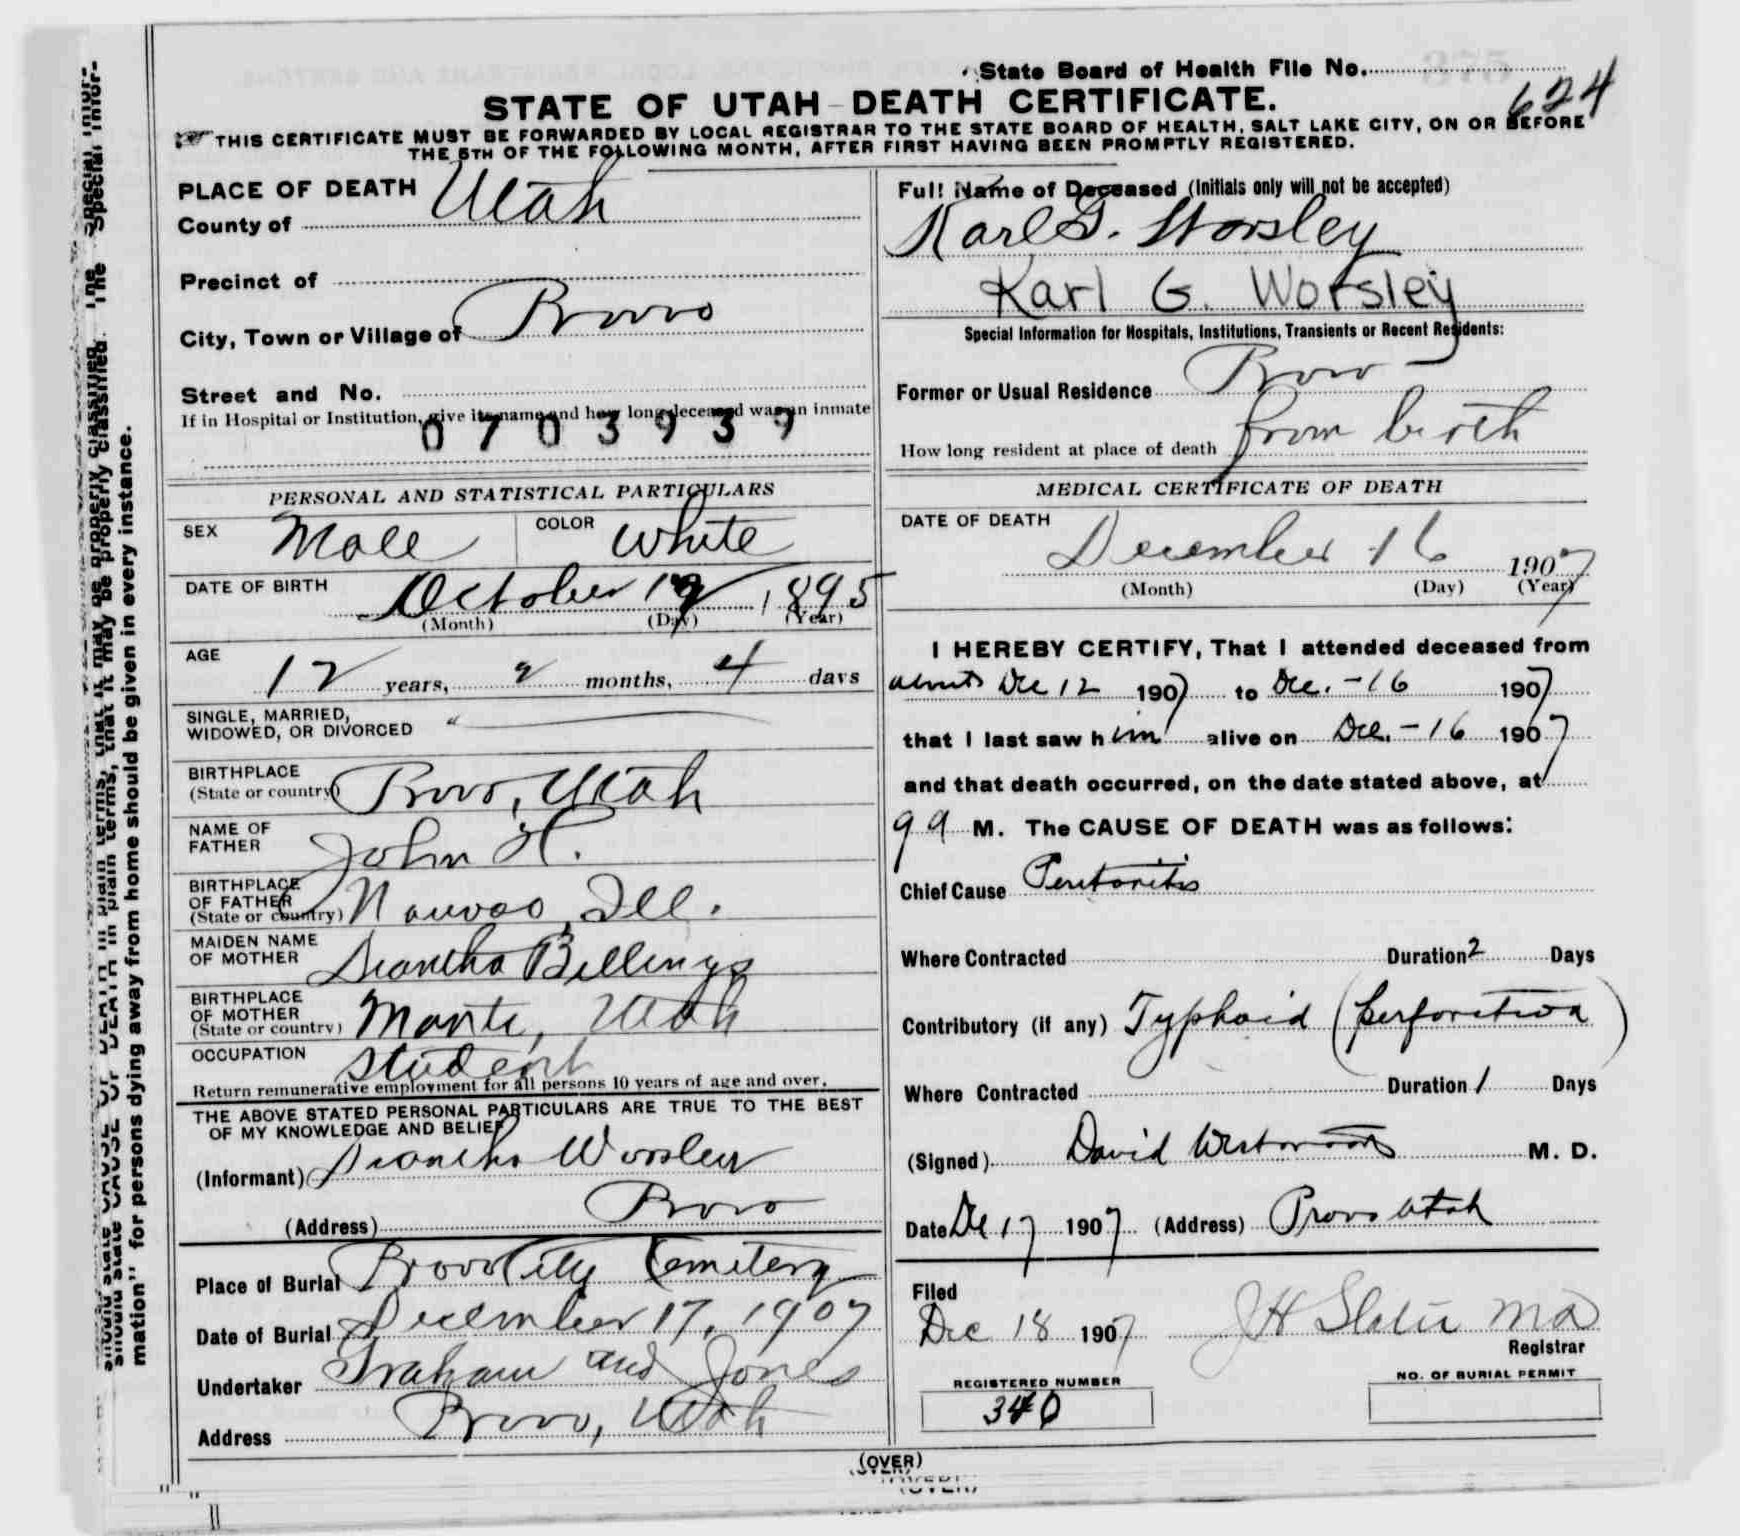 State Board of Health File No.
624
STATE OF UTAH - DEATH CERTIFICATE.
THIS CERTIFICATE MUST BE FORWARDED BY LOCAL REGISTRAR TO THE STATE BOARD OF HEALTH, SALT LAKE CITY, ON OR BEFORE
THE 5TH OF THE FOLLOWING MONTH, AFTER FIRST HAVING BEEN PROMPTLY REGISTERED.
PLACE OF DEATH
County of Utah
Precinct of
City, Town or Village of Provo
Street and No.
If in Hospital or Institution, give its name and how long deceased was an inmate
0703939
PERSONAL AND STATISTICAL PARTICULARS
SEX Male COLOR White
DATE OF BIRTH October 12 1895
(Month) (Day) (Year)
AGE 12 years, 2 months, 4 days
SINGLE, MARRIED,
WIDOWED, OR DIVORCED "
BIRTHPLACE
(State or country) Provo, Utah
NAME OF
FATHER John H.
BIRTHPLACE
OF FATHER
(State or country) Nauvoo, Ill.
MAIDEN NAME
OF MOTHER Diantha Billings
BIRTHPLACE
OF MOTHER
(State or country) Manti, Utah
OCCUPATION student
Return remunerative employment for all persons 10 years of age and over.
THE ABOVE STATED PERSONAL PARTICULARS ARE TRUE TO THE BEST
OF MY KNOWLEDGE AND BELIEF
(Informant) Diantha Worsley
(Address) Provo
Place of Burial Provo City Cemetery
Date of Burial December 17, 1907
Undertaker Graham and Jones
Address Provo, Utah
Full Name of Deceased (Initials only will not be accepted)
Karl G. Worsley
Karl G. Worsley
Special Information for Hospitals, Institutions, Transients or Recent Residents:
Former or Usual Residence Provo
How long resident at place of death from birth
MEDICAL CERTIFICATE OF DEATH
DATE OF DEATH
December 16 1907
(Month) (Day) (Year)
I HEREBY CERTIFY, That I attended deceased from
about Dec 12 1907 to Dec. - 16 1907
that I last saw him alive on Dec. - 16 1907
and that death occurred, on the date stated above, at
9 a M. The CAUSE OF DEATH was as follows:
Chief Cause Peritonitis
Where Contracted Duration 2 Days
Contributory (if any) Typhoid (perforation)
Where Contracted Duration 1 Days
(Signed) David Westwood M. D.
Date Dec 17 1907 (Address) Provo Utah
Filed
Dec 18 1907 J H Slater MD
Registrar
REGISTERED NUMBER
340
NO. OF BURIAL PERMIT
(OVER)
should state CAUSE OF DEATH in plain terms, that it may be properly classified. The "Special Infor-
mation" for persons dying away from home should be given in every instance.